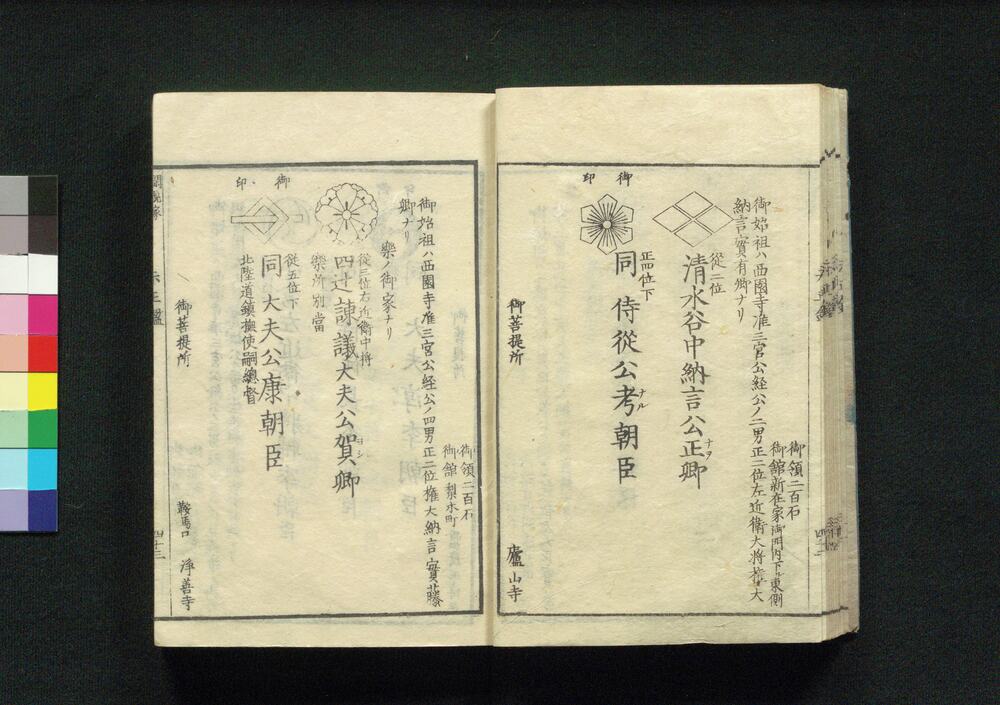 御領二百石
御舘新在家御門内下ル東側
御始祖ハ西園寺准三宮公経公ノ二男正二位左近衛大将権大
納言實有卿ナリ
従二位
清水谷中納言公正卿
ナヲ
正四位下
同侍従公考朝臣
ナル
御印
御菩提所
廬山寺
御領二百石
御舘梨木町
御始祖ハ西園寺准三宮公経公ノ四男正二位権大納言實藤
卿ナリ
樂ノ御家ナリ
従三位右近衛中将
四辻諫議大夫公賀卿
ヨシ
樂所別當
従五位下
同大夫公康朝臣
北陸道鎮撫使嗣總督
御印
御菩提所
鞍馬口
浄善寺
四十三